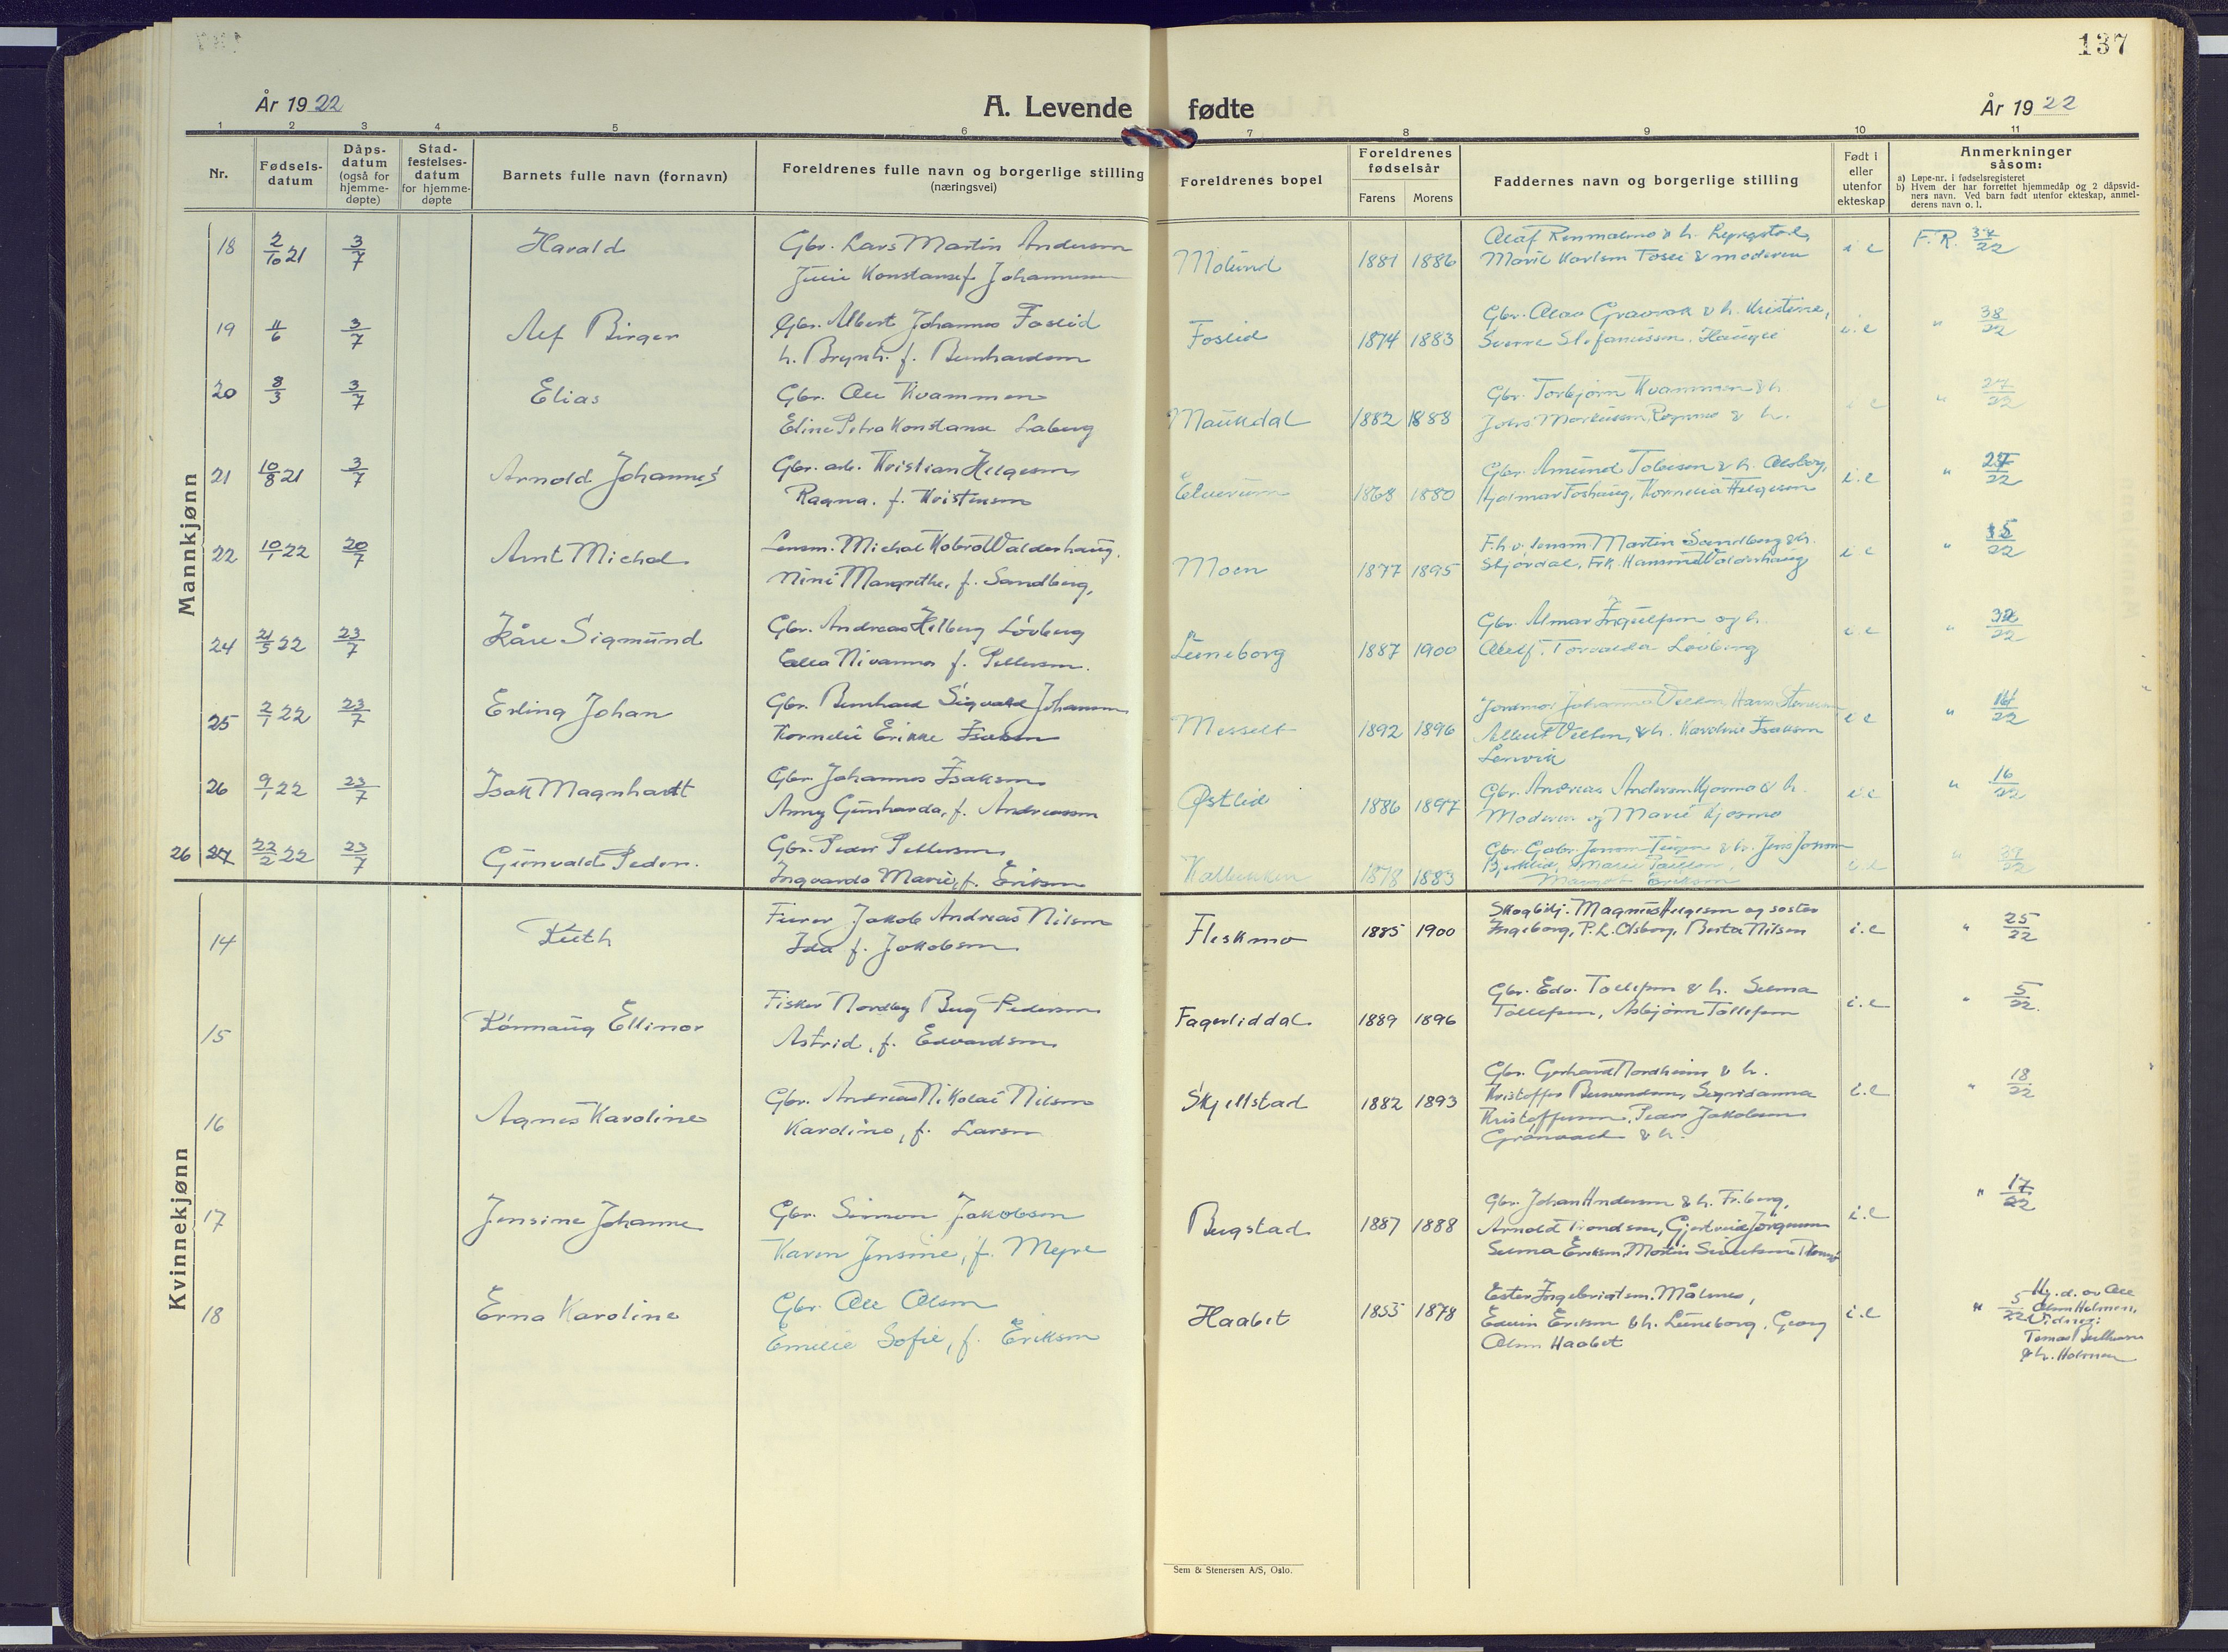 137
År 1922
A. Levende fødte
År 1922
1 2 3 4 5 6 7 8 9 10 11
Nr.
Fødsels-
datum
Dåps-
datum
(også for
hjemme-
døpte)
Stad-
festelses-
datum
for hjemme-
døpte
Barnets fulle navn (fornavn)
Foreldrenes fulle navn og borgerlige stilling
(næringsvei)
Foreldrenes bopel
Foreldrenes
fødselsår
Farens Morens
Faddernes navn og borgerlige stilling
Født i
eller
utenfor
ekteskap
Anmerkninger
såsom:
a) Løpe-nr. i fødselsregisteret
b) Hvem der har forrettet hjemmedåp og 2 dåpsvid-
ners navn. Ved barn født utenfor ekteskap, anmel-
derens navn o. l.
Mannkjønn
18 2/10 21 3/7 Harald Gbr. Lars Martin Andersen
Konstanse f. Johannesen
Molund 1881 1886 Olaf
Marie Karlsen & moderen
i e F. R. 34/22
19 11/6 3/7 Alf Birger Gbr. Albert Johannes Foslid
h. Brynh. f. Bernhardsen
Foslid 1874 1883 Gbr. Olav & h. Kristine,
Sverre Stefanussen, Haugli
i. e " 38/22
20 8/3 3/7 Elias Gbr. Ole Kvammen
Eline Petra Konstanse Laberg
Maukdal 1882 1888 Gbr. Torbjørn Kvammen & h.
Johs Markussen, & h.
i e " 27/22
21 10/8 21 3/7 Arnold Johannes Gbr. arb. Kristian Helgesen
Ragna. f. Kristensen
Elverum 1868 1880 Gbr. Amund Tobiesen & h. Olsborg,
Hjalmar Foshaug, Kornelia Helgesen
i. e " 27/22
22 10/1 22 20/7 Arnt Michal Lensm. Michal Kobro Walderhaug.
Nini Margrethe, f. Sandberg,
Moen 1877 1895 F. h. v. lensm Martin Sandberg & h.
Stjørdal, Frk. Hansine Walderhaug
i e " 15/22
24 21/5 22 23/7 Kåre Sigmund Gbr. Andreas Hilberg Løvberg
Nivanna f. Pettersen.
Luneborg 1887 1900 Gbr. Almar Ingulfsen og h.
Torvalda Løvberg
i. e " 32/22
25 2/1 22 23/7 Erling Johan Gbr. Bernhard Sigvald Johansen
Kornelie Erikke
Messelt 1892 1896 Jordmor Johanna
Albert & h. Karoline Isaksen
Lenvik
i e " 14/22
26 9/1 22 23/7 Isak Magnhardt Gbr. Johannes Isaksen
Anny Gunharda, f. Andreassen
Østlid 1886 1897 Gbr. Andreas Andersen Kjosmo & h.
Moderen og Marie Kjosmo
i e " 16/22
26 27 22/2 22 23/7 Gunvald Peder. Gbr. Peder Pettersen,
Ingvarda Marie, f. Eriksen
1878 1883 Gbr.
Margot Eriksen
i e "
Kvinnekjønn
14 Ruth Furer Jakob Andreas Nilsen
Ida f. Jakobsen
Fleskmo 1885 1900 Skogbetj. Magnus Helgesen og søster
Ingeborg, P. L. Olsborg, Berta Nilsen
i. e " 25/22
15 Rønnaug Ellinor Fisker Nordby Berg Pedersen
Astrid, f. Edvardsen
Fagerliddal 1889 1896 Gbr. Edv. Tollefsen & h. Selma
Tollefsen, Asbjørn Tollefsen
i. e " 5/22.
16 Agnes Karoline Gbr. Andreas Nikolai Nilsen
Karoline, f. Larsen
Skjellstad 1882 1893 Gbr. Gerhard Nordheim & h.
Kristoffer Berntsen, Sigridanna
Kristoffersen, Peder Jakobsen
Grønvoll & h.
i. e " 18/22
17 Jensine Johanne Gbr. Simon Jakobsen
Karen Jensine, f. Meyre
Bergstad 1887 1888 Gbr. Johan Andersen & h. Friberg,
Arnoldt Gjertrud Jørgensen
Selma Eriksen, Martin
i. e " 17/22
18 Erna Karoline Gbr. Ole Olsen
Emelie Sofie, f. Eriksen
Haabet 1855 1878 Ester Ingebrigtsen. Målsnes,
Edvin Eriksen & h. Luneborg, Georg
Olsen Haabet
i. e " 5/22 Hj. d. av Ole
Olsen Holmen,
Vidner:
Tomas
& h. Holmen
Sem & Stenersen A/S, Oslo.